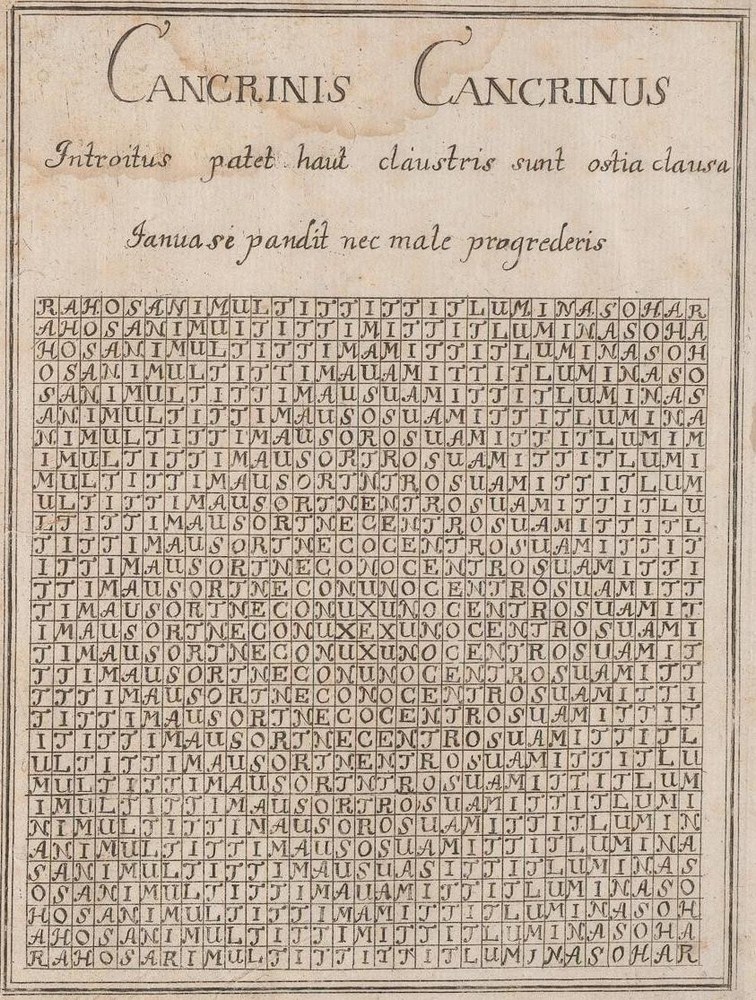 CANCRINIS CANCRINUS
Introitus patet haut claustris sunt ostia clausa
Ianua se pandit nec male progrederis
RAHOSANIMULTITTITTITLUMINASOHAR
AHOSANIMUITITTIMITTITLUMINASOHA
HOSANIMULTITTIMAMITTITLUMINASOH
OSANIMULTITTIMAUAMITTITLUMINASO
SANIMULTITTIMAUSUAMITTITLUMINAS
ANIMULTITTIMAUSOSUAMITTITLUMINA
NIMULTITTIMAUSOROSUAMITTITLUMIM
IMULTITTIMAUSORTROSUAMITTITLUMI
MULTITTIMAUSORTNTROSUAMITTITLUM
ULTITTIMAUSORTNENTROSUAMITTITLU
LTITTIMAUSORTNECENTROSUAMITTITL
TITTIMAUSORTNECOCENTROSUAMITTIT
ITTIMAUSORTNECONOCENTROSUAMITTI
TTIMAUSORTNECONUNOCENTROSUAMITT
TIMAUSORTNECONUXUNOCENTROSUAMIT
IMAUSORTNECONUXEXUNOCENTROSUAMI
TIMAUSORTNECONUXUNOCENTROSUAMIT
TTIMAUSORTNECONUNOCENTROSUAMITT
TTTIMAUSORTNECONOCENTROSUAMITTI
TITTIMAUSORTNECOCENTROSUAMITTIT
ITITTIMAUSORTNECENTROSUAMITTITL
ULTITTIMAUSORTNENTROSUAMITTITLU
MULTITTIMAUSORTNTROSUAMITTITLUM
IMULTITTIMAUSORTROSUAMITTITLUMI
NIMULTITTIMAUSOROSUAMITTITLUMIN
ANIMULTITTIMAUSOSUAMITTITLUMINA
SANIMULTITTIMAUSUASITTITLUMINAS
OSANIMULTITTIMAUAMITTITLUMINASO
HOSANIMULTITTIMAMITTITLUMINASOH
AHOSANIMULTITTIMITTITLUMINASOHA
RAHOSARIMULTITTITTITLUMINASOHAR